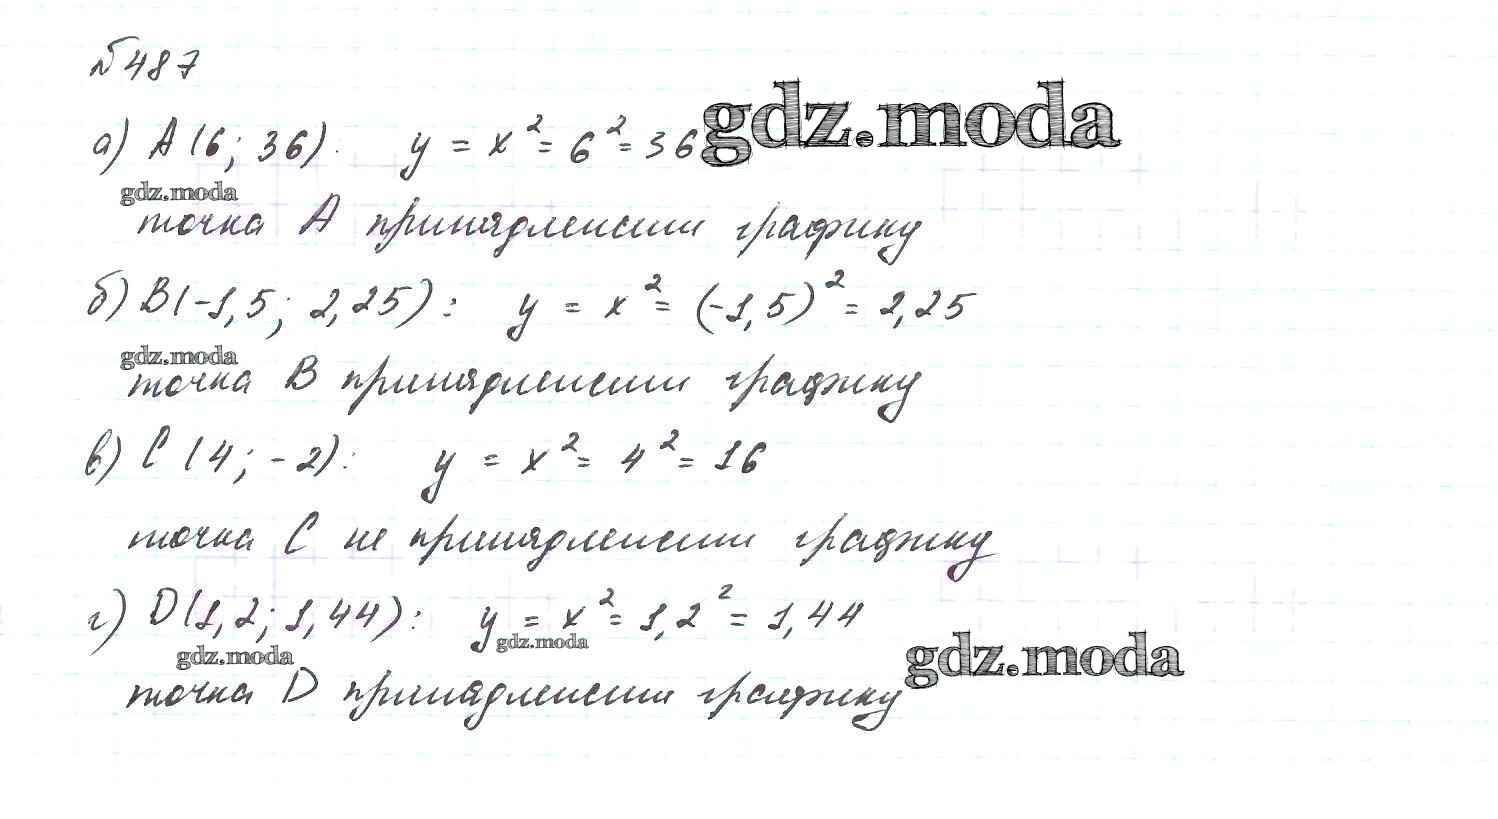 №487
а) A(6; 36). y = x² = 6² = 36 gdz.moda
gdz.moda
точка A принадлежит графику
б) B(-1,5; 2,25): y = x² = (-1,5)² = 2,25
gdz.moda
точка B принадлежит графику
в) C(4; -2): y = x² = 4² = 16
точка C не принадлежит графику
г) D(1,2; 1,44): y = x² = 1,2² = 1,44
gdz.moda gdz.moda gdz.moda
точка D принадлежит графику